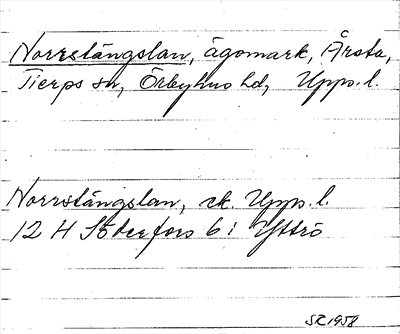 Norrstängslan, ägomark, Årsta,
Tierps sn, Örbyhus hd, Upps. l.
Norrstängslan, ek. Upps. l.
12 H Söderfors 6 i Yttrö
SR 1958